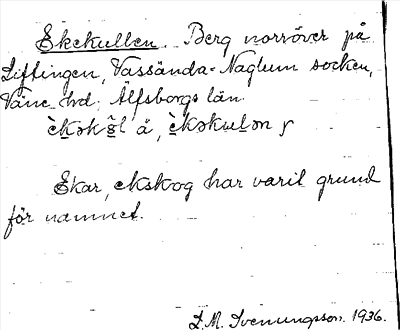 Ekekullen. Berg norröver på
Liffingen, Vassända-Naglum socken,
Väne hd, Älfsborgs län.
å,
Ekar, ekskog har varit grund
för namnet.
L. M. Svenungsson. 1936.